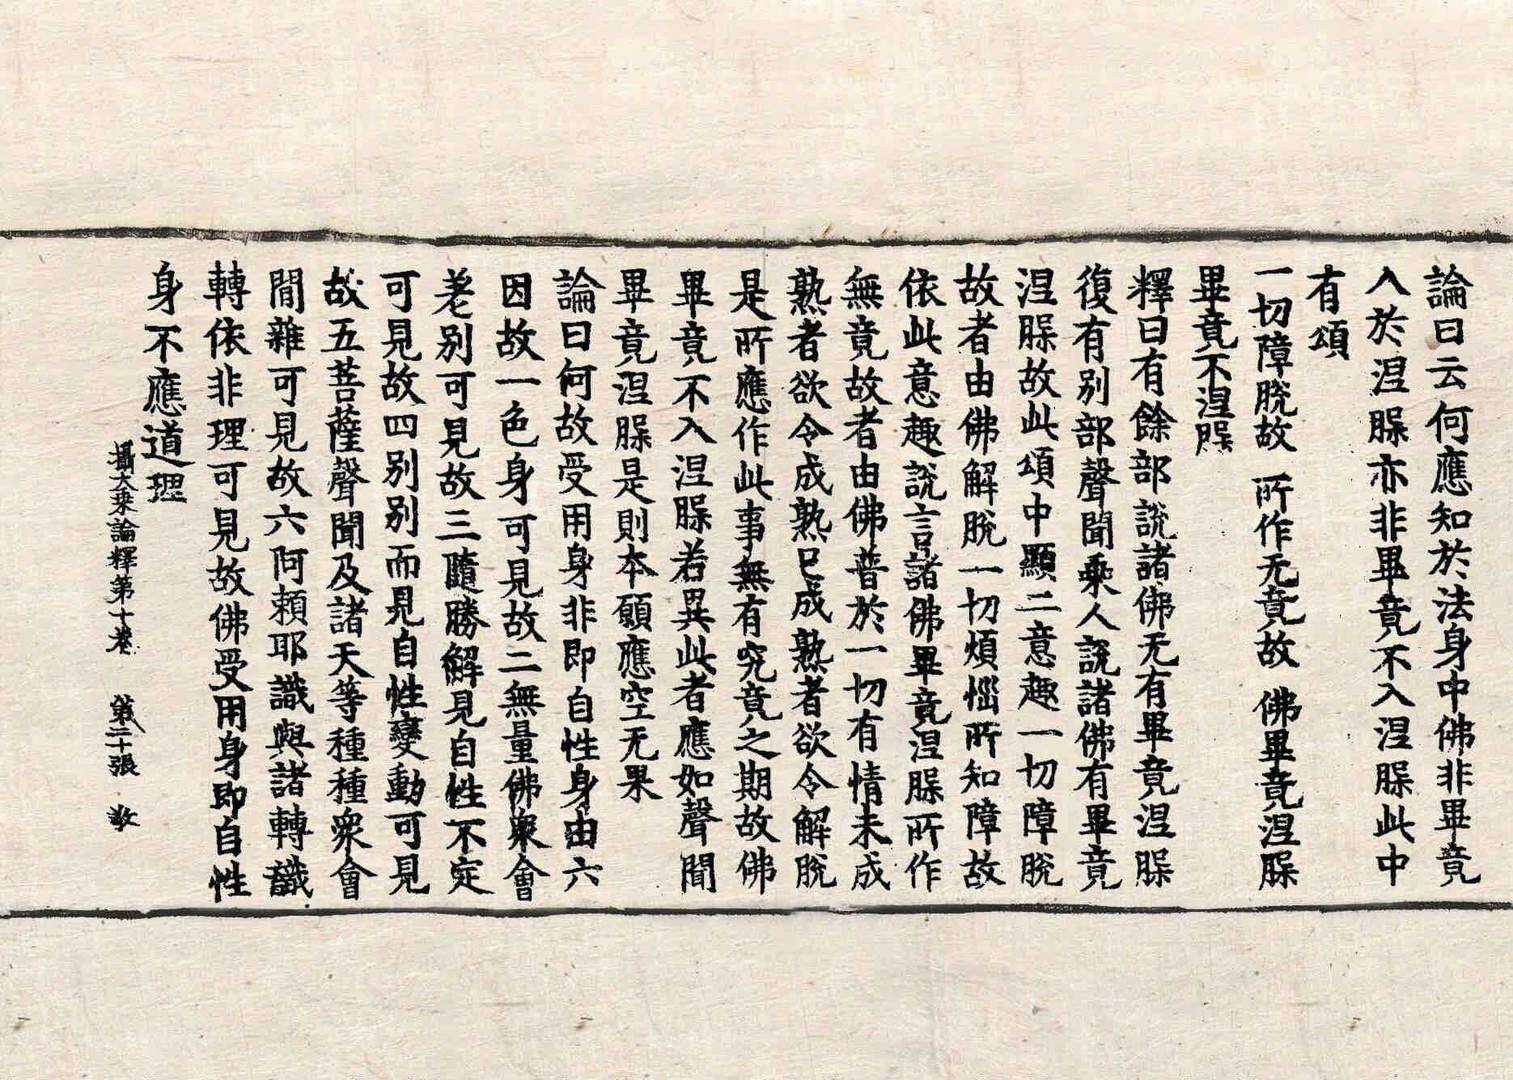 論曰云何應知於法身中佛非畢竟
入於涅槃亦非畢竟不入涅槃此中
有頌
一切障脫故 所作无竟故 佛畢竟涅槃
畢竟不涅槃
釋曰有餘部說諸佛无有畢竟涅槃
復有別部聲聞乘人說諸佛有畢竟
涅槃故此頌中顯二意趣一切障脫
故者由佛解脫一切煩惱所知障故
依此意趣說言諸佛畢竟涅槃所作
無竟故者由佛普於一切有情未成
熟者欲令成熟已成熟者欲令解脫
是所應作此事無有究竟之期故佛
畢竟不入涅槃若異此者應如聲聞
畢竟涅槃是則本願應空无果
論曰何故受用身非即自性身由六
因故一色身可見故二無量佛衆會
差別可見故三隨勝解見自性不定
可見故四別別而見自性變動可見
故五菩薩聲聞及諸天等種種衆會
閒雜可見故六阿賴耶識與諸轉識
轉依非理可見故佛受用身即自性
身不應道理
攝大乘論釋第十卷 第二十張 敬